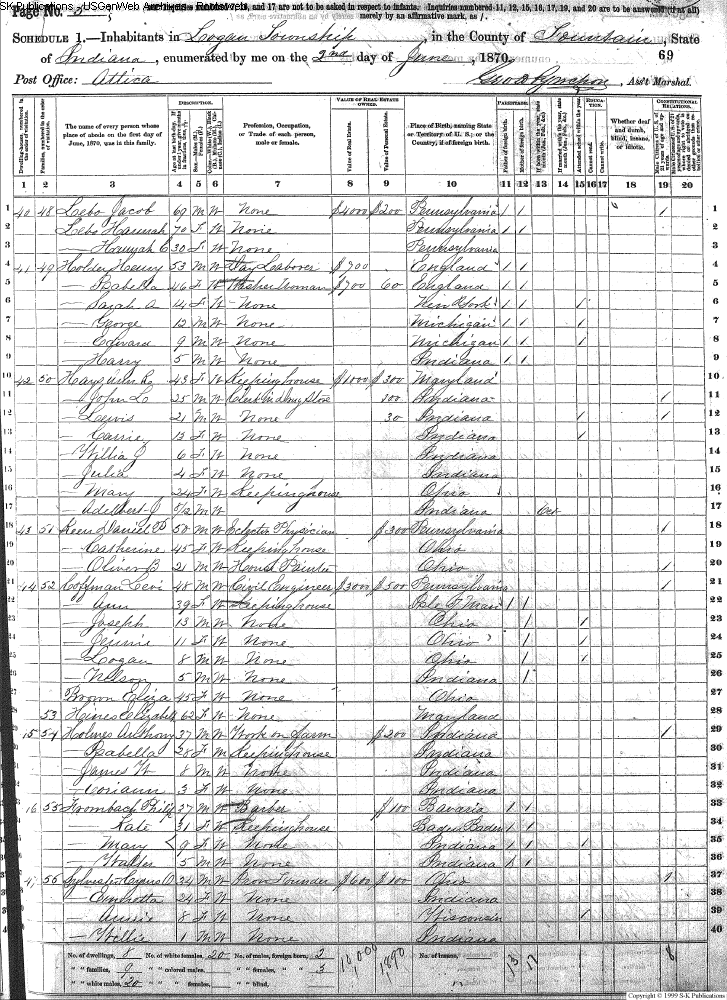 SK Publications - USGenWeb Archives - Footer
Page No. 5
Inquiries numbered 7, 16, and 17 are not to be asked in respect to infants. Inquiries numbered 11, 12, 15, 16, 17, 19, and 20 are to be answered (if at all)
merely by an affirmative mark, as /.
SCHEDULE 1.—Inhabitants in Logan Township, in the County of Fountain, State
of Indiana, enumerated by me on the 2nd day of June, 1870. 69
Post Office: Attica Ass't Marshal.
DESCRIPTION. VALUE OF REAL ESTATE OWNED. PARENTAGE. EDUCATION. CONSTITUTIONAL RELATIONS.
The name of every person whose place of abode on the first day of June, 1870, was in this family.
Profession, Occupation, or Trade of each person, male or female.
Value of Real Estate.
Value of Personal Estate.
Place of Birth, naming State or Territory of U. S.; or the Country, if of foreign birth.
Whether deaf and dumb, blind, insane, or idiotic.
1 2 3 4 5 6 7 8 9 10 11 12 13 14 15 16 17 18 19 20
1 40 48 Lebo Jacob 69 M W None $4000 $200 Pennsylvania / / / 1
2 Lebo Hannah 70 F W None Pennsylvania / / 2
3 — Hannah C 30 F W None Pennsylvania 3
4 41 49 Holder Henry 53 M W Day Laborer $700 England / / 4
5 — Isabella 46 F W Washer Woman $700 60 England / / 5
6 — Sarah A 14 F W None New York / / / 6
7 — George 12 M W None Michigan / / / 7
8 — Edward 9 M W None Michigan / / / 8
9 — Harry 5 M W None Indiana / / 9
10 42 50 Hays 43 F W Keeping house $1000 $300 Maryland 10
11 — John L 25 M W Clerk in drug Store 100 Indiana / 11
12 — Lewis 21 M W None 30 Indiana / / 12
13 — Carrie 13 F W None Indiana / 13
14 — Willia J 6 F W None Indiana 14
15 — Julia 4 F W None Indiana 15
16 — Mary 24 F W Keeping house Ohio 16
17 — Adelbert J 8/12 M W Indiana Oct 17
18 43 51 Daniel 50 M W Eclectic Physician $300 Pennsylvania / 18
19 — Catherine 45 F W Keeping house Ohio 19
20 — Oliver B 21 M W House Painter Ohio / 20
21 44 52 Coffman Levi 48 M W Civil Engineer $3000 $500 Pennsylvania / 21
22 — Ann 39 F W Keeping house Isle of Man / / 22
23 — Joseph 13 M W None Ohio / / 23
24 — 11 F W None Ohio / / 24
25 — Logan 8 M W None Ohio / / 25
26 — Nelson 5 M W None Indiana / 26
27 Brown Eliza 45 F W None Ohio 27
28 53 Heines Elizabeth 62 F W None Maryland 28
29 45 54 Holmes Anthony 37 M W Work on Farm $200 Indiana / 29
30 — Isabella 28 F W Keeping house Indiana 30
31 — James W 8 M W None Indiana 31
32 — Coriann 3 F W None Indiana 32
33 46 55 Frombach Philip 37 M W Barber $100 Bavaria / / 33
34 — Kate 31 F W Keeping house Baden Baden / / 34
35 — Mary 9 F W None Indiana / / / 35
36 — Walter 5 M W None Indiana / / 36
37 47 56 Sylvester Cyrus O 34 M W Iron Founder $600 $100 Ohio / 37
38 — 24 F W None Indiana 38
39 — Annie 8 F W None Wisconsin / 39
40 — Willie 1 M W None Indiana 40
No. of dwellings, 8 No. of white females, 20 No. of males, foreign born, 2 10,000 1,890 No. of insane, 13 17 8
" " families, 9 " " colored males, " " females, " " 3
" " white males, 20 " " females, " " blind,
Copyright © 1999 S-K Publications